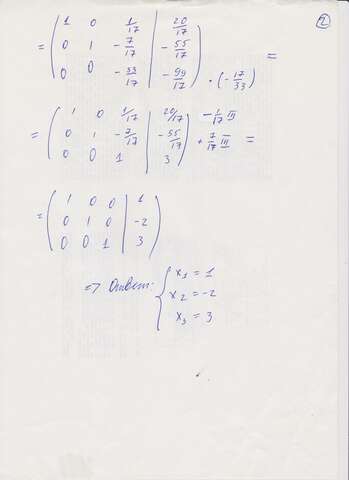 2
= ( 1 0 1/17 | 20/17
0 1 -7/17 | -55/17 =
0 0 -33/17 | -99/17 ) · (-17/33)
= ( 1 0 1/17 | 20/17 -1/17 III
0 1 -7/17 | -55/17 +7/17 III =
0 0 1 | 3 )
= ( 1 0 0 | 1
0 1 0 | -2
0 0 1 | 3 )
=> Ответ: { x₁ = 1
x₂ = -2
x₃ = 3